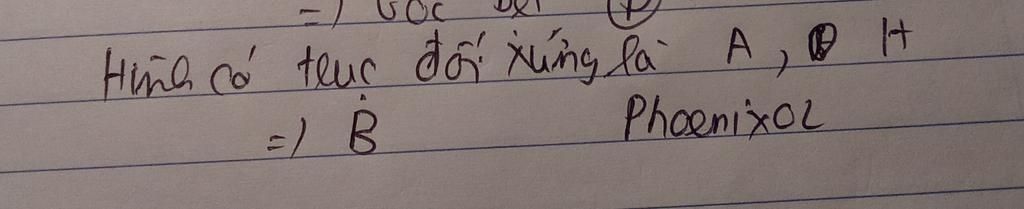 =) GÓC
Hình có trục đối xứng là A, H
=) B PhoenixOL